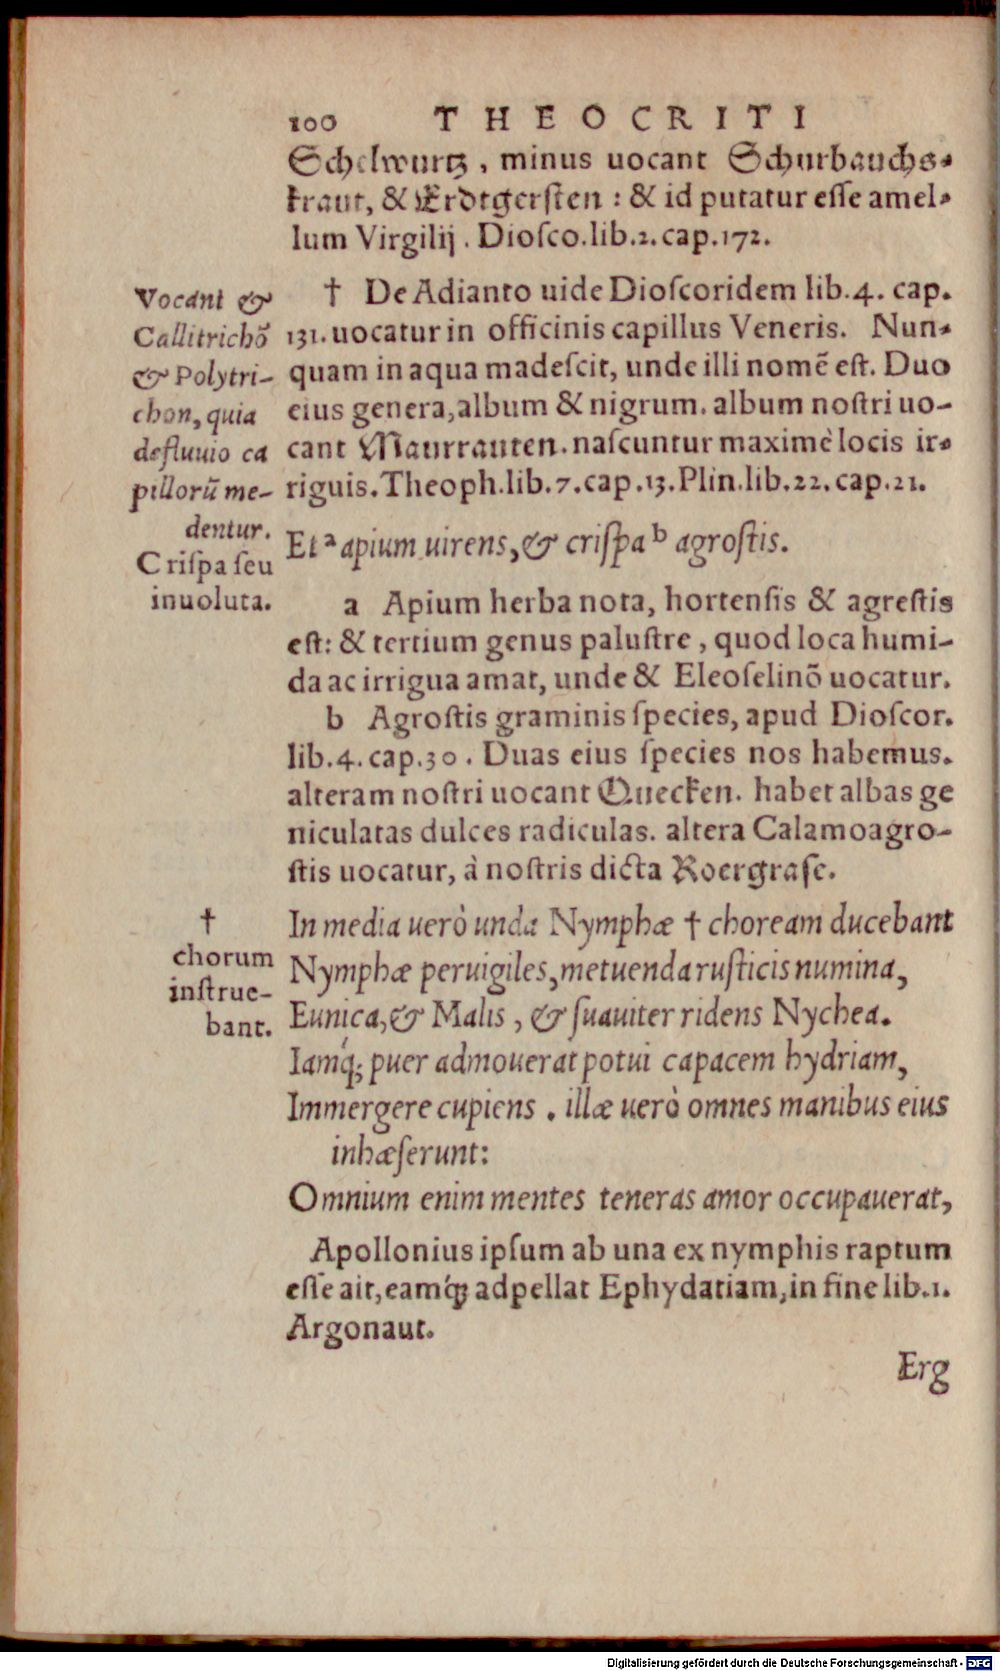 100 THEOCRITI
Schelwurtz, minus uocant Schurbauchs-
kraut, & Erdtgersten : & id putatur esse amel-
lum Virgilij. Diosco.lib.2.cap.172.
† De Adianto uide Dioscoridem lib.4. cap.
131. uocatur in officinis capillus Veneris. Nun-
quam in aqua madescit, unde illi nomē est. Duo
eius genera, album & nigrum. album nostri uo-
cant Maurrauten. nascuntur maximè locis ir-
riguis. Theoph.lib.7.cap.13. Plin.lib.22.cap.21.
Vocant &
Callitrichō
& Polytri-
chon, quia
defluuio ca
pillorū me-
dentur.
Crispa seu
inuoluta.
Et a apium uirens, & crispa b agrostis.
a Apium herba nota, hortensis & agrestis
est: & tertium genus palustre, quod loca humi-
da ac irrigua amat, unde & Eleoselinō uocatur.
b Agrostis graminis species, apud Dioscor.
lib.4. cap.30. Duas eius species nos habemus.
alteram nostri uocant Quecken. habet albas ge
niculatas dulces radiculas. altera Calamoagro-
stis uocatur, à nostris dicta Roergrase.
In media uerò unda Nymphæ † choream ducebant
Nymphæ peruigiles, metuenda rusticis numina,
Eunica, & Malis, & suauiter ridens Nychea.
Iamq́; puer admouerat potui capacem hydriam,
Immergere cupiens. illæ uerò omnes manibus eius
inhæserunt:
Omnium enim mentes teneras amor occupauerat,
†
chorum
instrue-
bant.
Apollonius ipsum ab una ex nymphis raptum
esse ait, eamq́; adpellat Ephydatiam, in fine lib.1.
Argonaut.
Erg
Digitalisierung gefördert durch die Deutsche Forschungsgemeinschaft - DFG